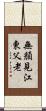 無顏見江
東父老